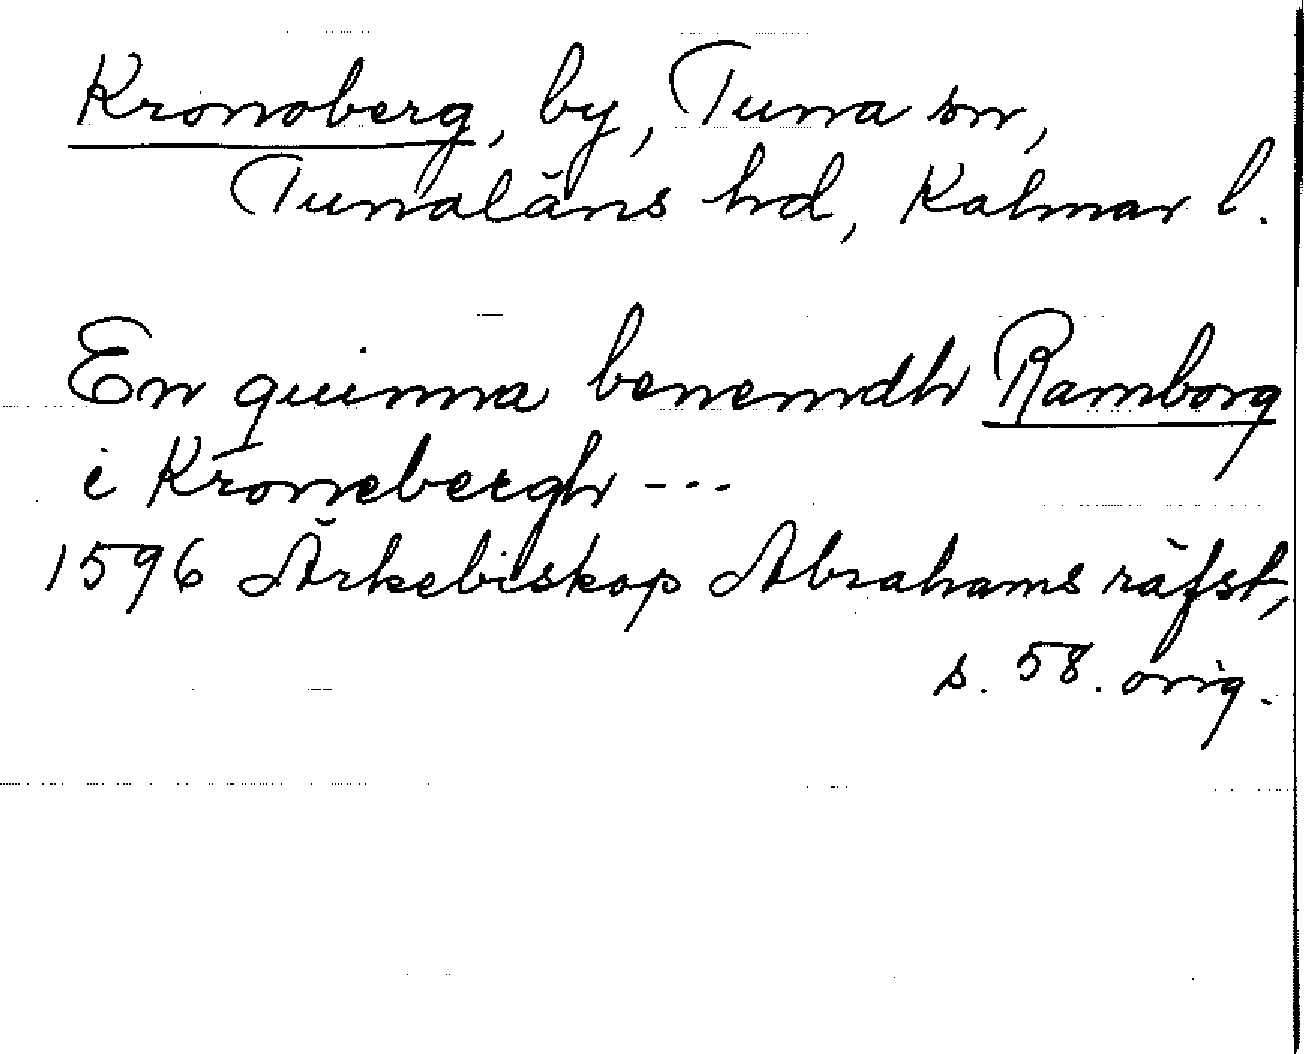 Kronoberg, by, Tuna sn,
Tunaläns hd, Kalmar l.
En quinna benemdh Ramborg
i Kronebergh ---
1596 Ärkebiskop Abrahams räfst,
s. 58. orig.